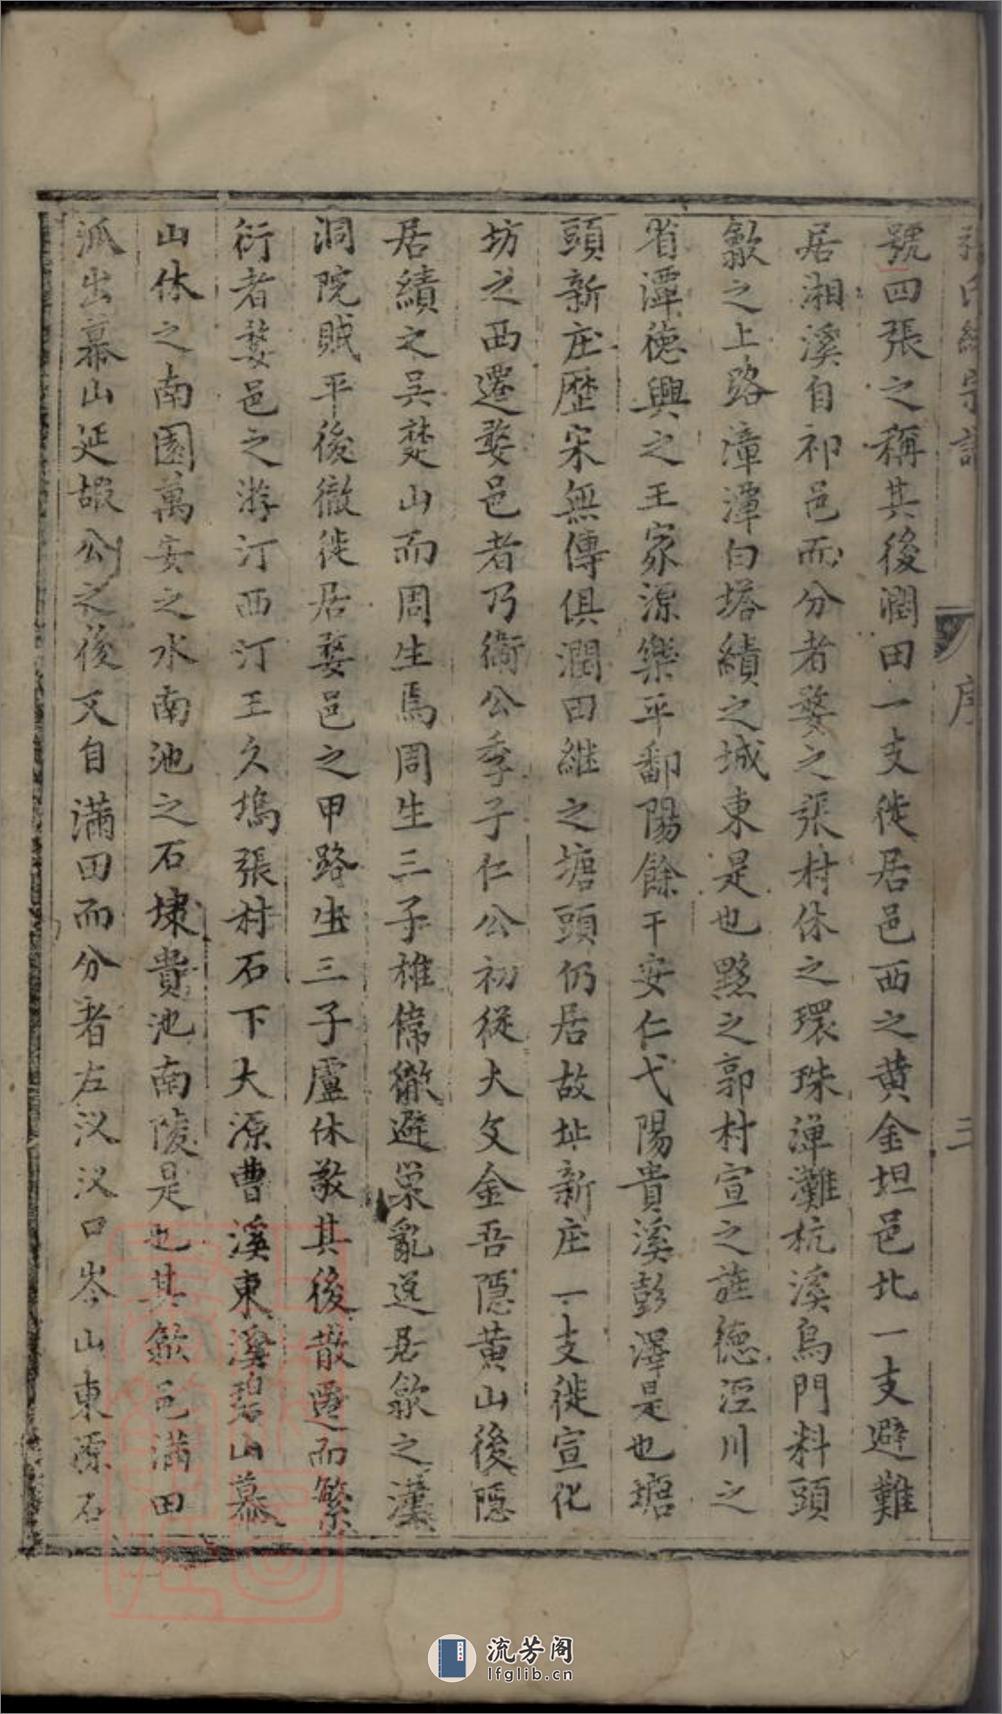 張氏統宗譜 序 三
號四張之稱其後潤田一支徙居邑西之黄金坦邑北一支避難
居湘溪自祁邑而分者婺之張村休之環珠渖灘杭溪烏門料頭
歙之上路漳潭白塔績之城東是也黟之郭村宣之旌德涇川之
省潭德興之王家源樂平鄱陽餘干安仁弋陽貴溪彭澤是也塘
頭新庄歷宋無傳俱潤田継之塘頭仍居故址新庄一支徙宣化
坊之西遷婺邑者乃衟公季子仁公初從大父金吾隱黄山後隱
居績之吴楚山而周生焉周生三子雄偉徹避巢亂迯居歙之漢
洞院賊平後徹徙居婺邑之甲路生三子廬休敬其後散遷而繁
衍者婺邑之游汀西汀王久塢張村石下大源曹溪東溪碧山慕
山休之南園萬安之水南池之石埭貴池南陵是也其歙邑满田
派出慕山延嘏公之後又自满田而分者左汊汊口岑山東源石
流芳阁
lfglib.cn